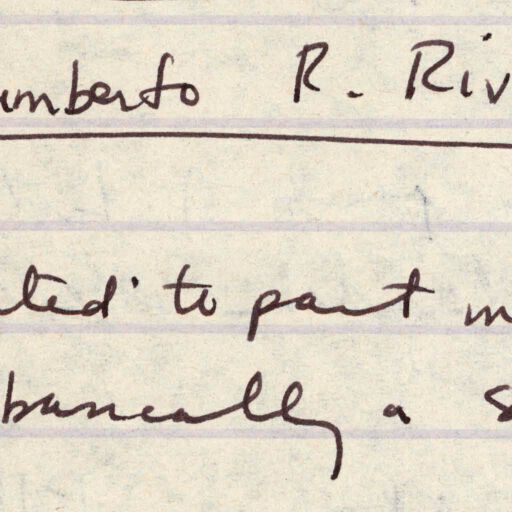 umberto R. Riv
ted to paint m
basically a s